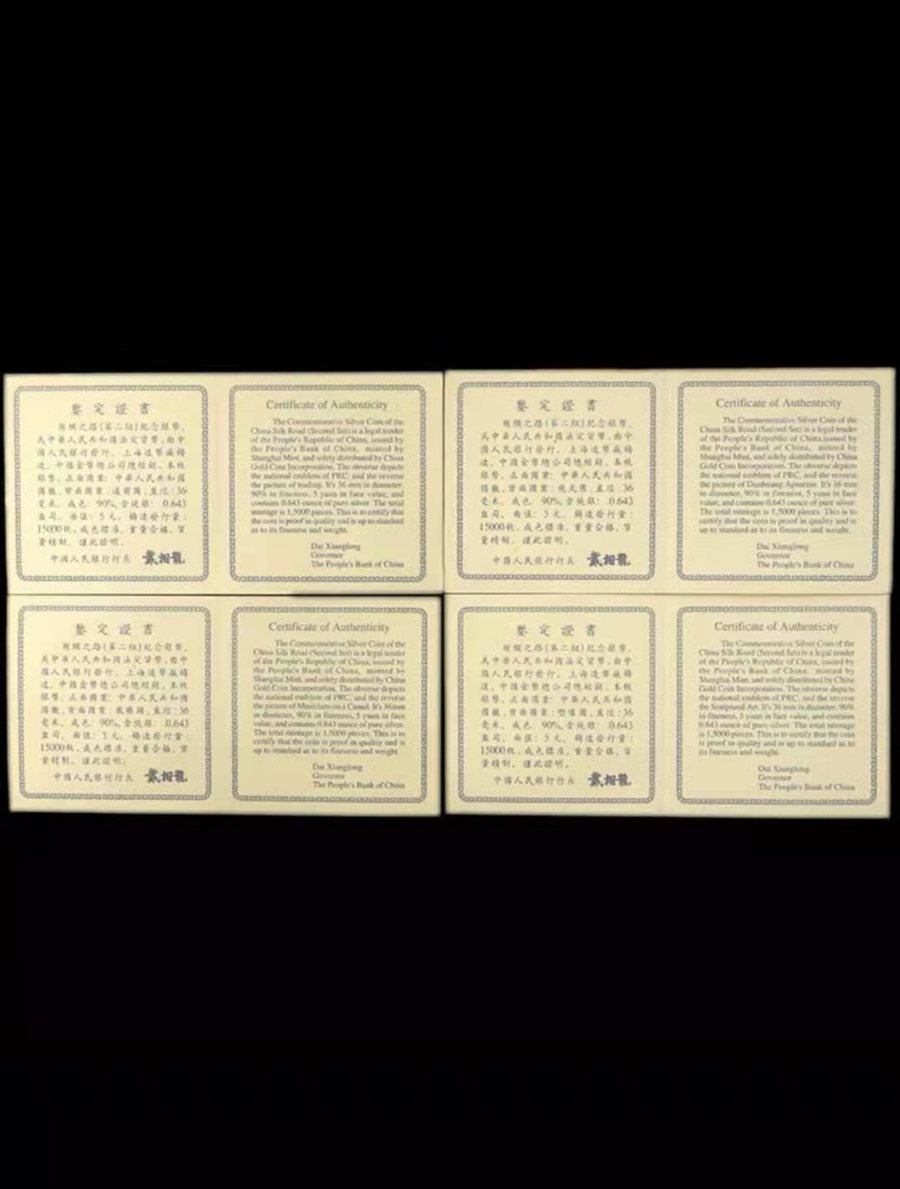 鑒定證書
絲綢之路(第二組)紀念銀幣,
為中華人民共和國法定貨幣,由中
國人民銀行發行。上海造幣廠鑄
造。中國金幣總公司總經銷。本枚
銀幣,正面圖案:中華人民共和國
國徽,背面圖案:通商圖,直徑:36
毫米,成色:90%,含純銀:0.643
盎司,面值:5元,鑄造發行量:
15000枚,成色標準,重量合格,質
量精制。謹此證明。
中國人民銀行行長 戴相龍
Certificate of Authenticity
The Commemorative Silver Coin of the
China Silk Road (Second Set) is a legal tender
of the People's Republic of China, issued by
the People's Bank of China, minted by
Shanghai Mint, and solely distributed by China
Gold Coin Incorporation. The obverse depicts
the national emblem of PRC, and the reverse
the picture of trading. It's 36 mm in diameter,
90% in fineness, 5 yuan in face value, and
contains 0.643 ounce of pure silver. The total
mintage is 1,5000 pieces. This is to certify that
the coin is proof in quality and is up to standard
as to its fineness and weight.
Dai Xianglong
Governor
The People's Bank of China
鑒定證書
絲綢之路(第二組)紀念銀幣,
為中華人民共和國法定貨幣,由中
國人民銀行發行。上海造幣廠鑄
造。中國金幣總公司總經銷。本枚
銀幣,正面圖案:中華人民共和國
國徽,背面圖案:飛天圖,直徑:36
毫米,成色:90%,含純銀:0.643
盎司,面值:5元,鑄造發行量:
15000枚,成色標準,重量合格,質
量精制。謹此證明。
中國人民銀行行長 戴相龍
Certificate of Authenticity
The Commemorative Silver Coin of the
China Silk Road (Second Set) is a legal tender
of the People's Republic of China, issued by
the People's Bank of China, minted by
Shanghai Mint, and solely distributed by China
Gold Coin Incorporation. The obverse depicts
the national emblem of PRC, and the reverse
the picture of Dunhuang Apsarine. It's 36 mm
in diameter, 90% in fineness, 5 yuan in face
value, and contains 0.643 ounce of pure silver.
The total mintage is 1,5000 pieces. This is to
certify that the coin is proof in quality and is
up to standard as to its fineness and weight.
Dai Xianglong
Governor
The People's Bank of China
鑒定證書
絲綢之路(第二組)紀念銀幣,
為中華人民共和國法定貨幣,由中
國人民銀行發行。上海造幣廠鑄
造。中國金幣總公司總經銷。本枚
銀幣,正面圖案:中華人民共和國
國徽,背面圖案:載樂圖,直徑:36
毫米,成色:90%,含純銀:0.643
盎司,面值:5元,鑄造發行量:
15000枚,成色標準,重量合格,質
量精制。謹此證明。
中國人民銀行行長 戴相龍
Certificate of Authenticity
The Commemorative Silver Coin of the
China Silk Road (Second Set) is a legal tender
of the People's Republic of China, issued by
the People's Bank of China, minted by
Shanghai Mint, and solely distributed by China
Gold Coin Incorporation. The obverse depicts
the national emblem of PRC, and the reverse
the picture of Musicians on a Camel. It's 36mm
in diameter, 90% in fineness, 5 yuan in face
value, and contains 0.643 ounce of pure silver.
The total mintage is 1,5000 pieces. This is to
certify that the coin is proof in quality and is
up to standard as to its fineness and weight.
Dai Xianglong
Governor
The People's Bank of China
鑒定證書
絲綢之路(第二組)紀念銀幣,
為中華人民共和國法定貨幣,由中
國人民銀行發行。上海造幣廠鑄
造。中國金幣總公司總經銷。本枚
銀幣,正面圖案:中華人民共和國
國徽,背面圖案:塑像圖,直徑:36
毫米,成色:90%,含純銀:0.643
盎司,面值:5元,鑄造發行量:
15000枚,成色標準,重量合格,質
量精制。謹此證明。
中國人民銀行行長 戴相龍
Certificate of Authenticity
The Commemorative Silver Coin of the
China Silk Road (Second Set) is a legal tender
of the People's Republic of China, issued by
the People's Bank of China, minted by
Shanghai Mint, and solely distributed by China
Gold Coin Incorporation. The obverse depicts
the national emblem of PRC, and the reverse
the Sculptural Art. It's 36 mm in diameter, 90%
in fineness, 5 yuan in face value, and contains
0.643 ounce of pure silver. The total mintage
is 1,5000 pieces. This is to certify that the coin
is proof in quality and is up to standard as to
its fineness and weight.
Dai Xianglong
Governor
The People's Bank of China